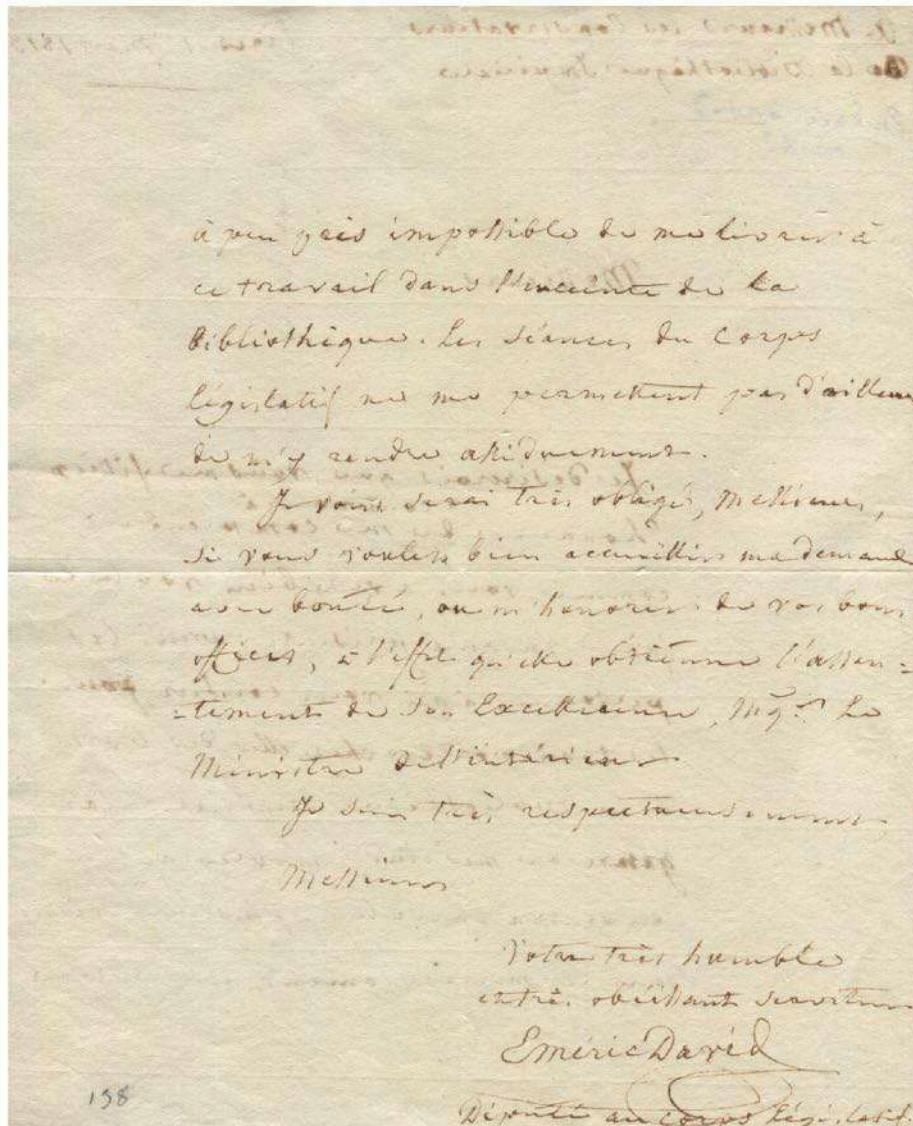 à peu près impossible de me livrer à
ce travail dans l'enceinte de la
Bibliothèque. Les séances du Corps
législatif ne me permettent pas d'ailleurs
de m'y rendre assiduement.
Je vous serai très obligé, Messieurs,
si vous voulez bien accueillir ma demande
avec bonté, ou m'honorer de vos bons
offices, à l'effet qu'elle obtienne l'assen=
=timent de Son Excellence, Mgr. Le
Ministre de l'intérieur.
Je suis très respectueusement,
Messieurs
Votre très humble
et très obéissant serviteur
Eméric David
Député au Corps législatif.
158